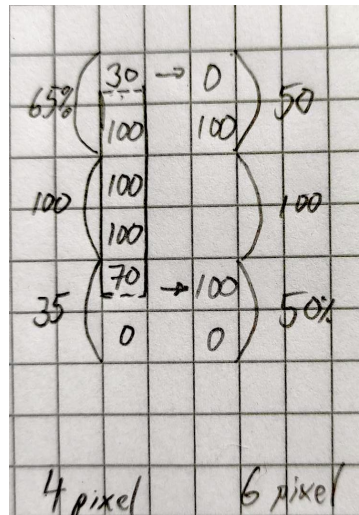 30 → 0
65% 50
100 100
100
100 100
100
70 → 100
35 50%
0 0
4 pixel 6 pixel